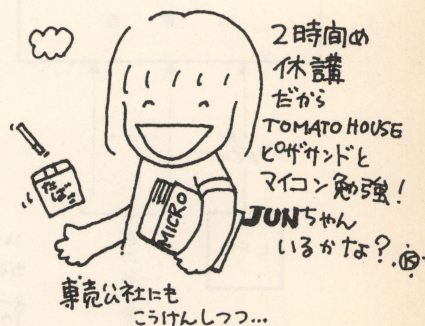 2時間め
休講
だから
TOMATO HOUSE
ピザサンドと
マイコン勉強!
JUNちゃん
いるかな?. Ⓚ
たばこ
MICRO
専売公社にも
こうけんしつつ...